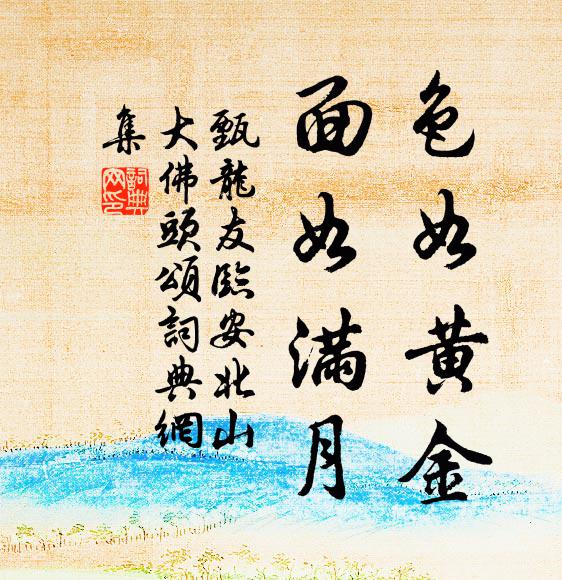 色如黃金
面如滿月
甄龍友臨安北山
大佛頭頌詞典網
集
詞典
网印